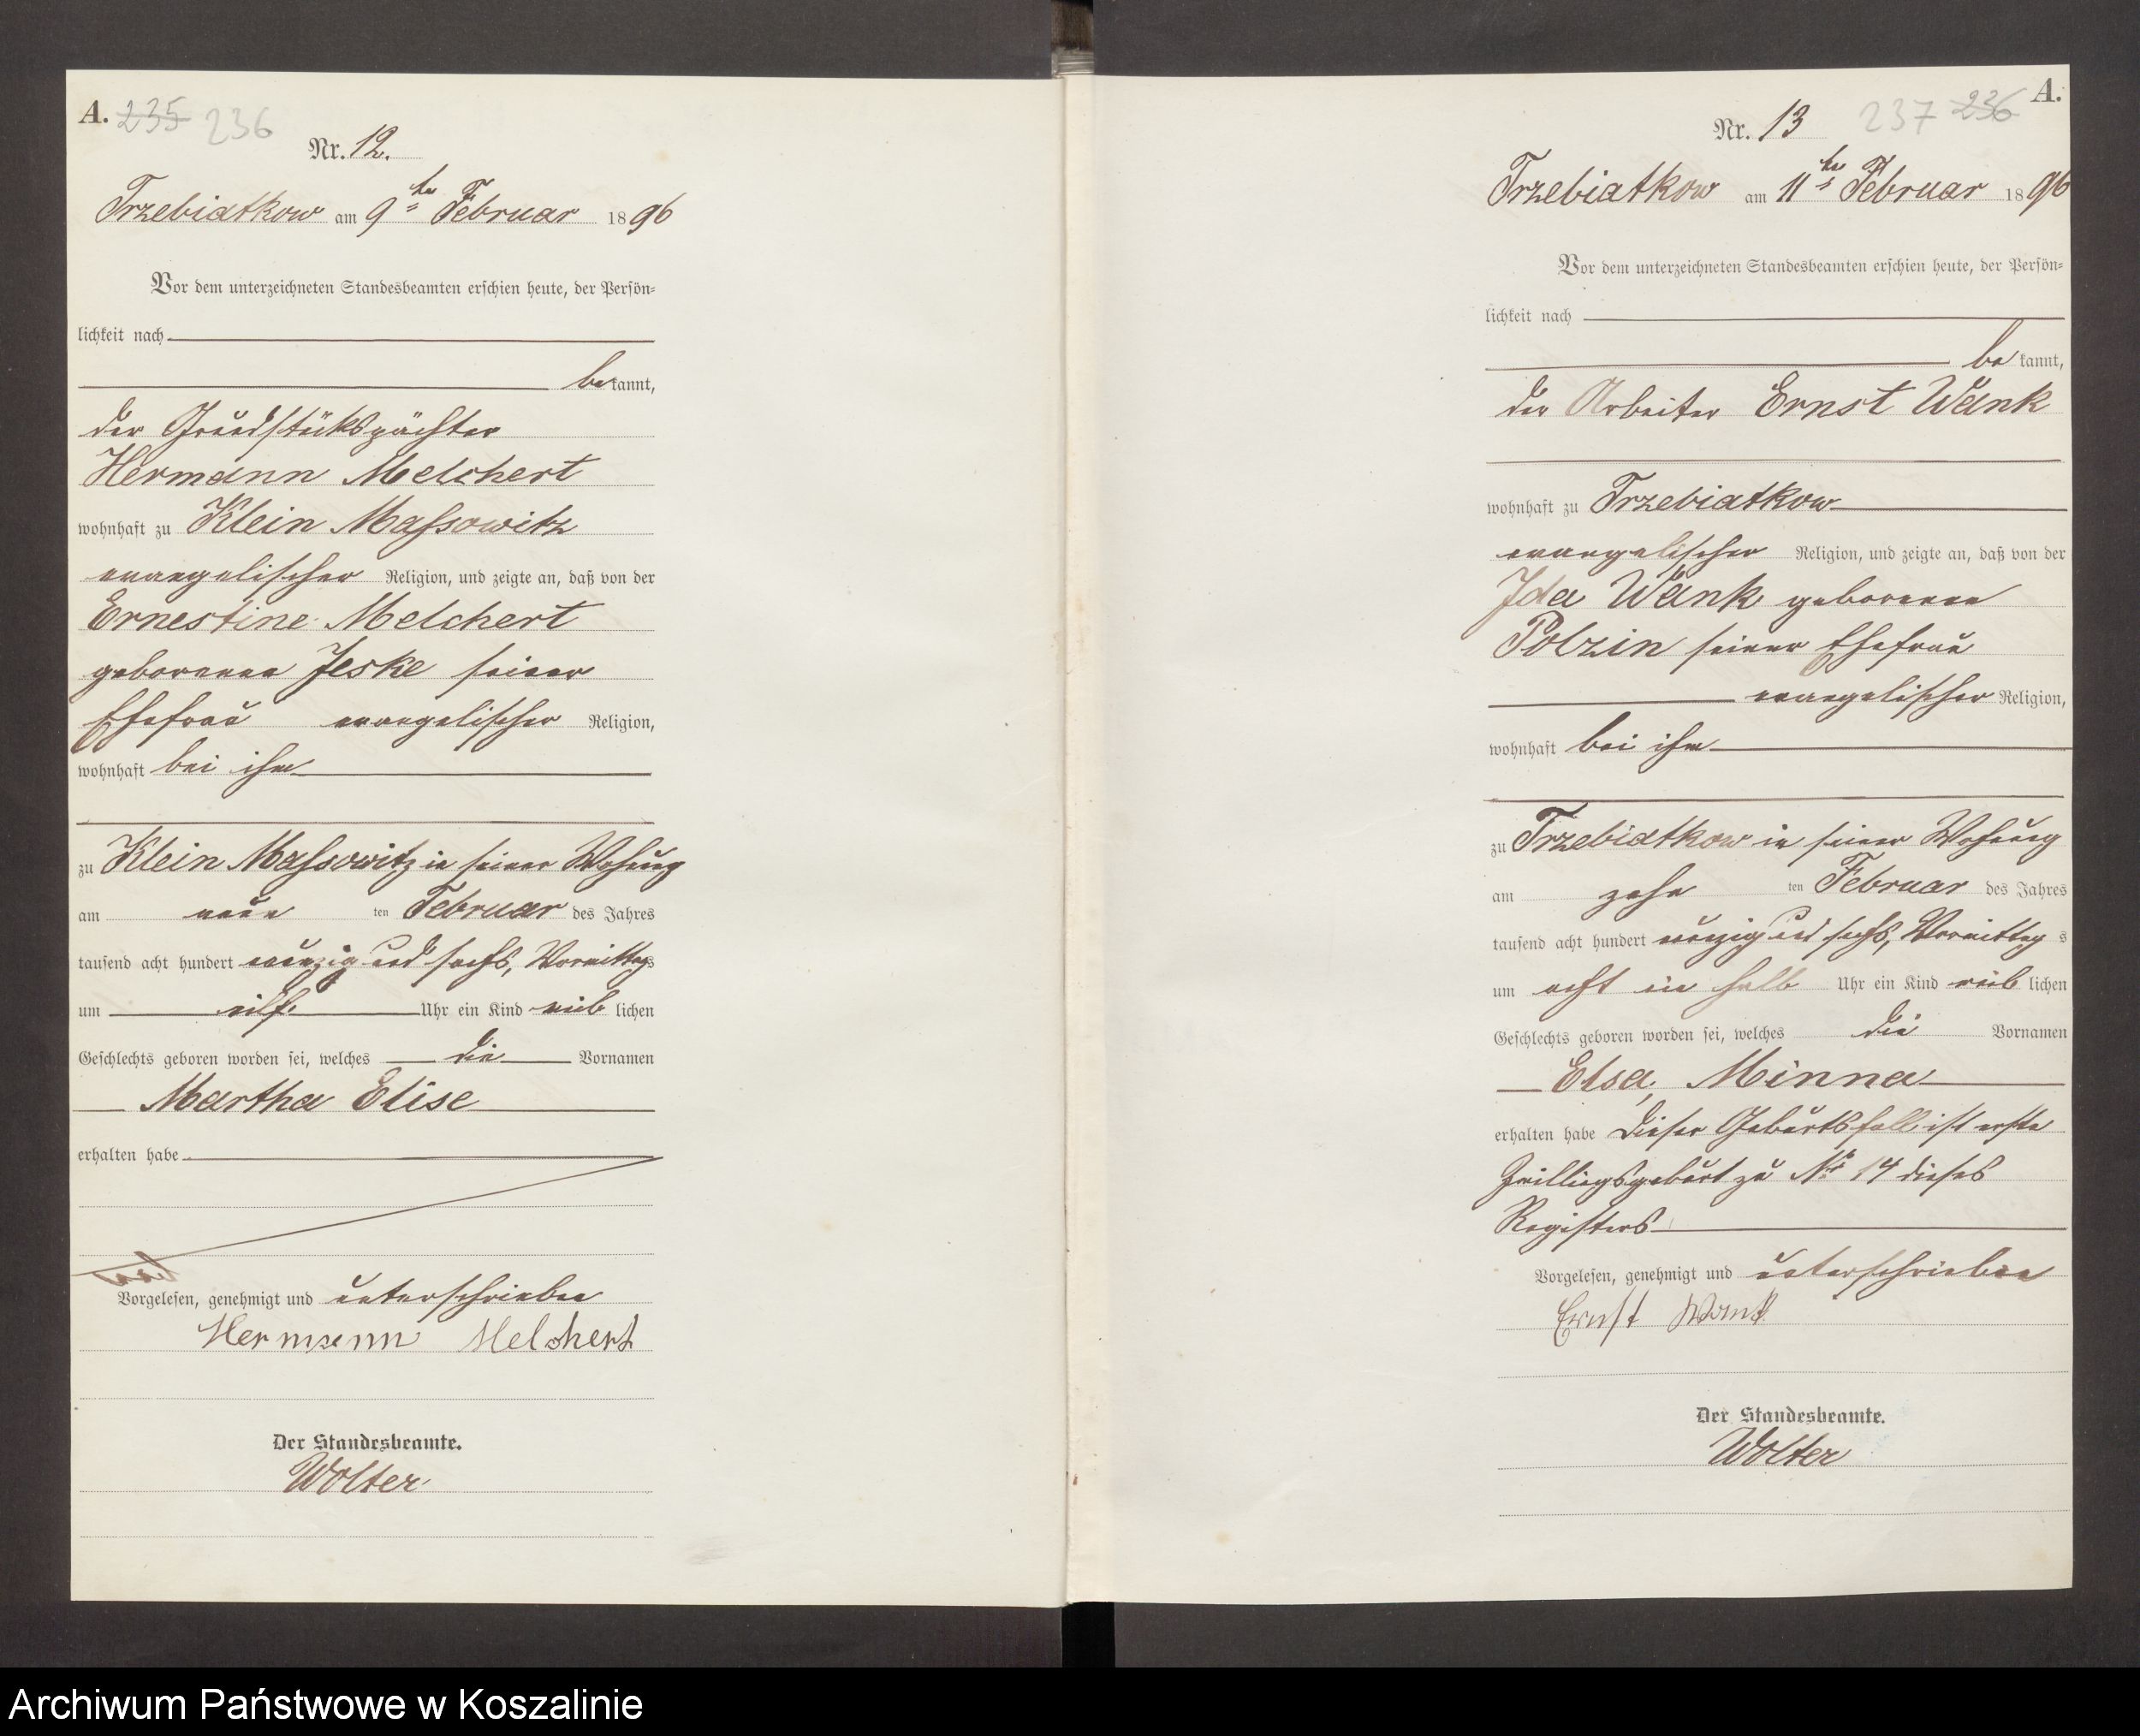 A. 235 236
Nr. 12.
Trzebiatkow am 9ten Februar 1896
Vor dem unterzeichneten Standesbeamten erschien heute, der Persön=
lichkeit nach
bekannt,
der Grundstückspächter
Hermann Melchert
wohnhaft zu Klein Massowitz
evangelischer Religion, und zeigte an, daß von der
Ernestine Melchert
geborenen Jeske seiner
Ehefrau evangelischer Religion,
wohnhaft bei ihm
zu Klein Massowitz in seiner Wohnung
am neun ten Februar des Jahres
tausend acht hundert neunzig und sechs, Vormittags
um elf Uhr ein Kind weiblichen
Geschlechts geboren worden sei, welches die Vornamen
Martha Elise
erhalten habe
Vorgelesen, genehmigt und unterschrieben
Hermann Melchert
Der Standesbeamte.
Wolter
237 236 A.
Nr. 13
Trzebiatkow am 11ten Februar 1896
Vor dem unterzeichneten Standesbeamten erschien heute, der Persön=
lichkeit nach
bekannt,
der Arbeiter Ernst Wänk
wohnhaft zu Trzebiatkow
evangelischer Religion, und zeigte an, daß von der
Ida Wänk geborenen
Polzin seiner Ehefrau
evangelischer Religion,
wohnhaft bei ihm
zu Trzebiatkow in seiner Wohnung
am zehn ten Februar des Jahres
tausend acht hundert neunzig und sechs, Vormittag s
um acht ein halb Uhr ein Kind weiblichen
Geschlechts geboren worden sei, welches die Vornamen
Elsa, Minna
erhalten habe Dieser Geburtsfall ist erste
Zwillingsgeburt zu No 14 dieses
Registers
Vorgelesen, genehmigt und unterschrieben
Ernst Wänk
Der Standesbeamte.
Wolter
Archiwum Państwowe w Koszalinie